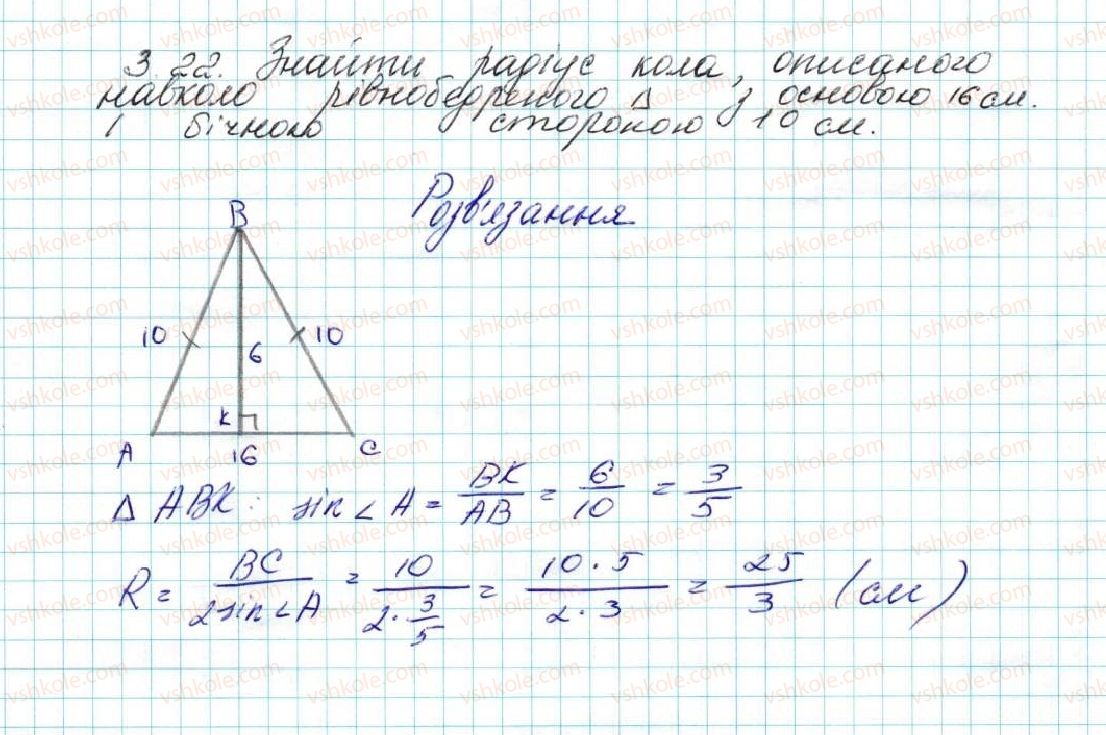 3.22. Знайти радіус кола, описаного
навколо рівнобедреного Δ з основою 16 см.
і бічною стороною 10 см.
Розв'язання
B
10 10
6
K
A 16 C
Δ ABK: sin∠A = BK/AB = 6/10 = 3/5
R = BC/(2sin∠A) = 10/(2·3/5) = (10·5)/(2·3) = 25/3 (см)
vshkole.com